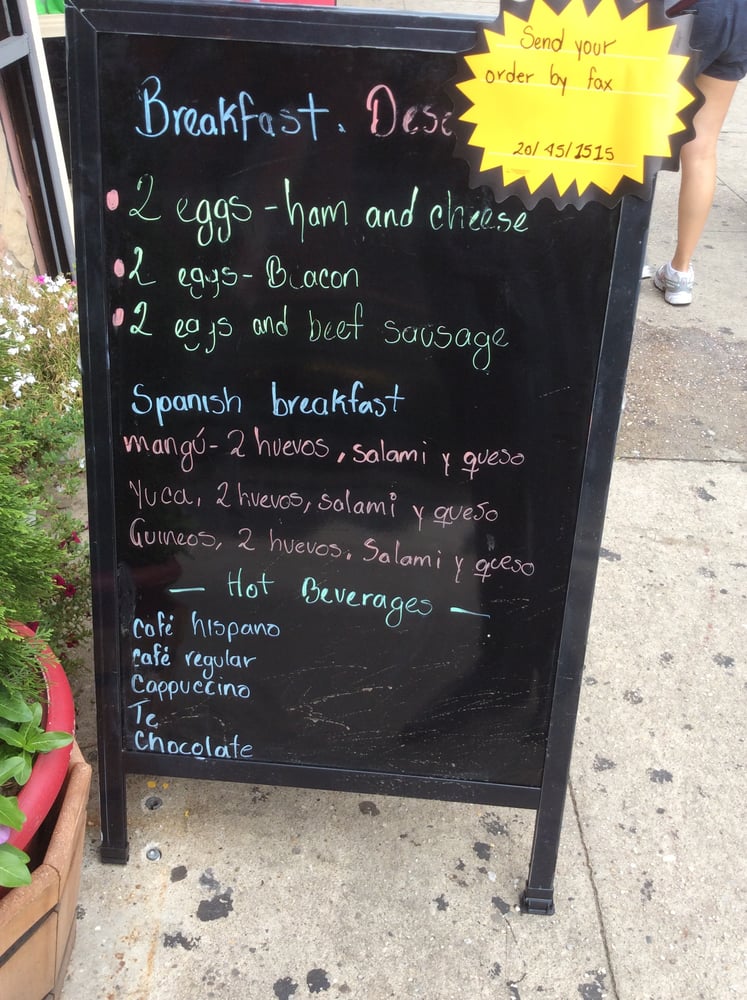 Send your
order by fax
20/45/1515
Breakfast. Desc
2 eggs - ham and cheese
2 eggs - Bacon
2 eggs and beef sausage
Spanish breakfast
mangú - 2 huevos, salami y queso
Yuca, 2 huevos, salami y queso
Guineos, 2 huevos, Salami y queso
— Hot Beverages —
café hispano
café regular
Cappuccino
Te
Chocolate